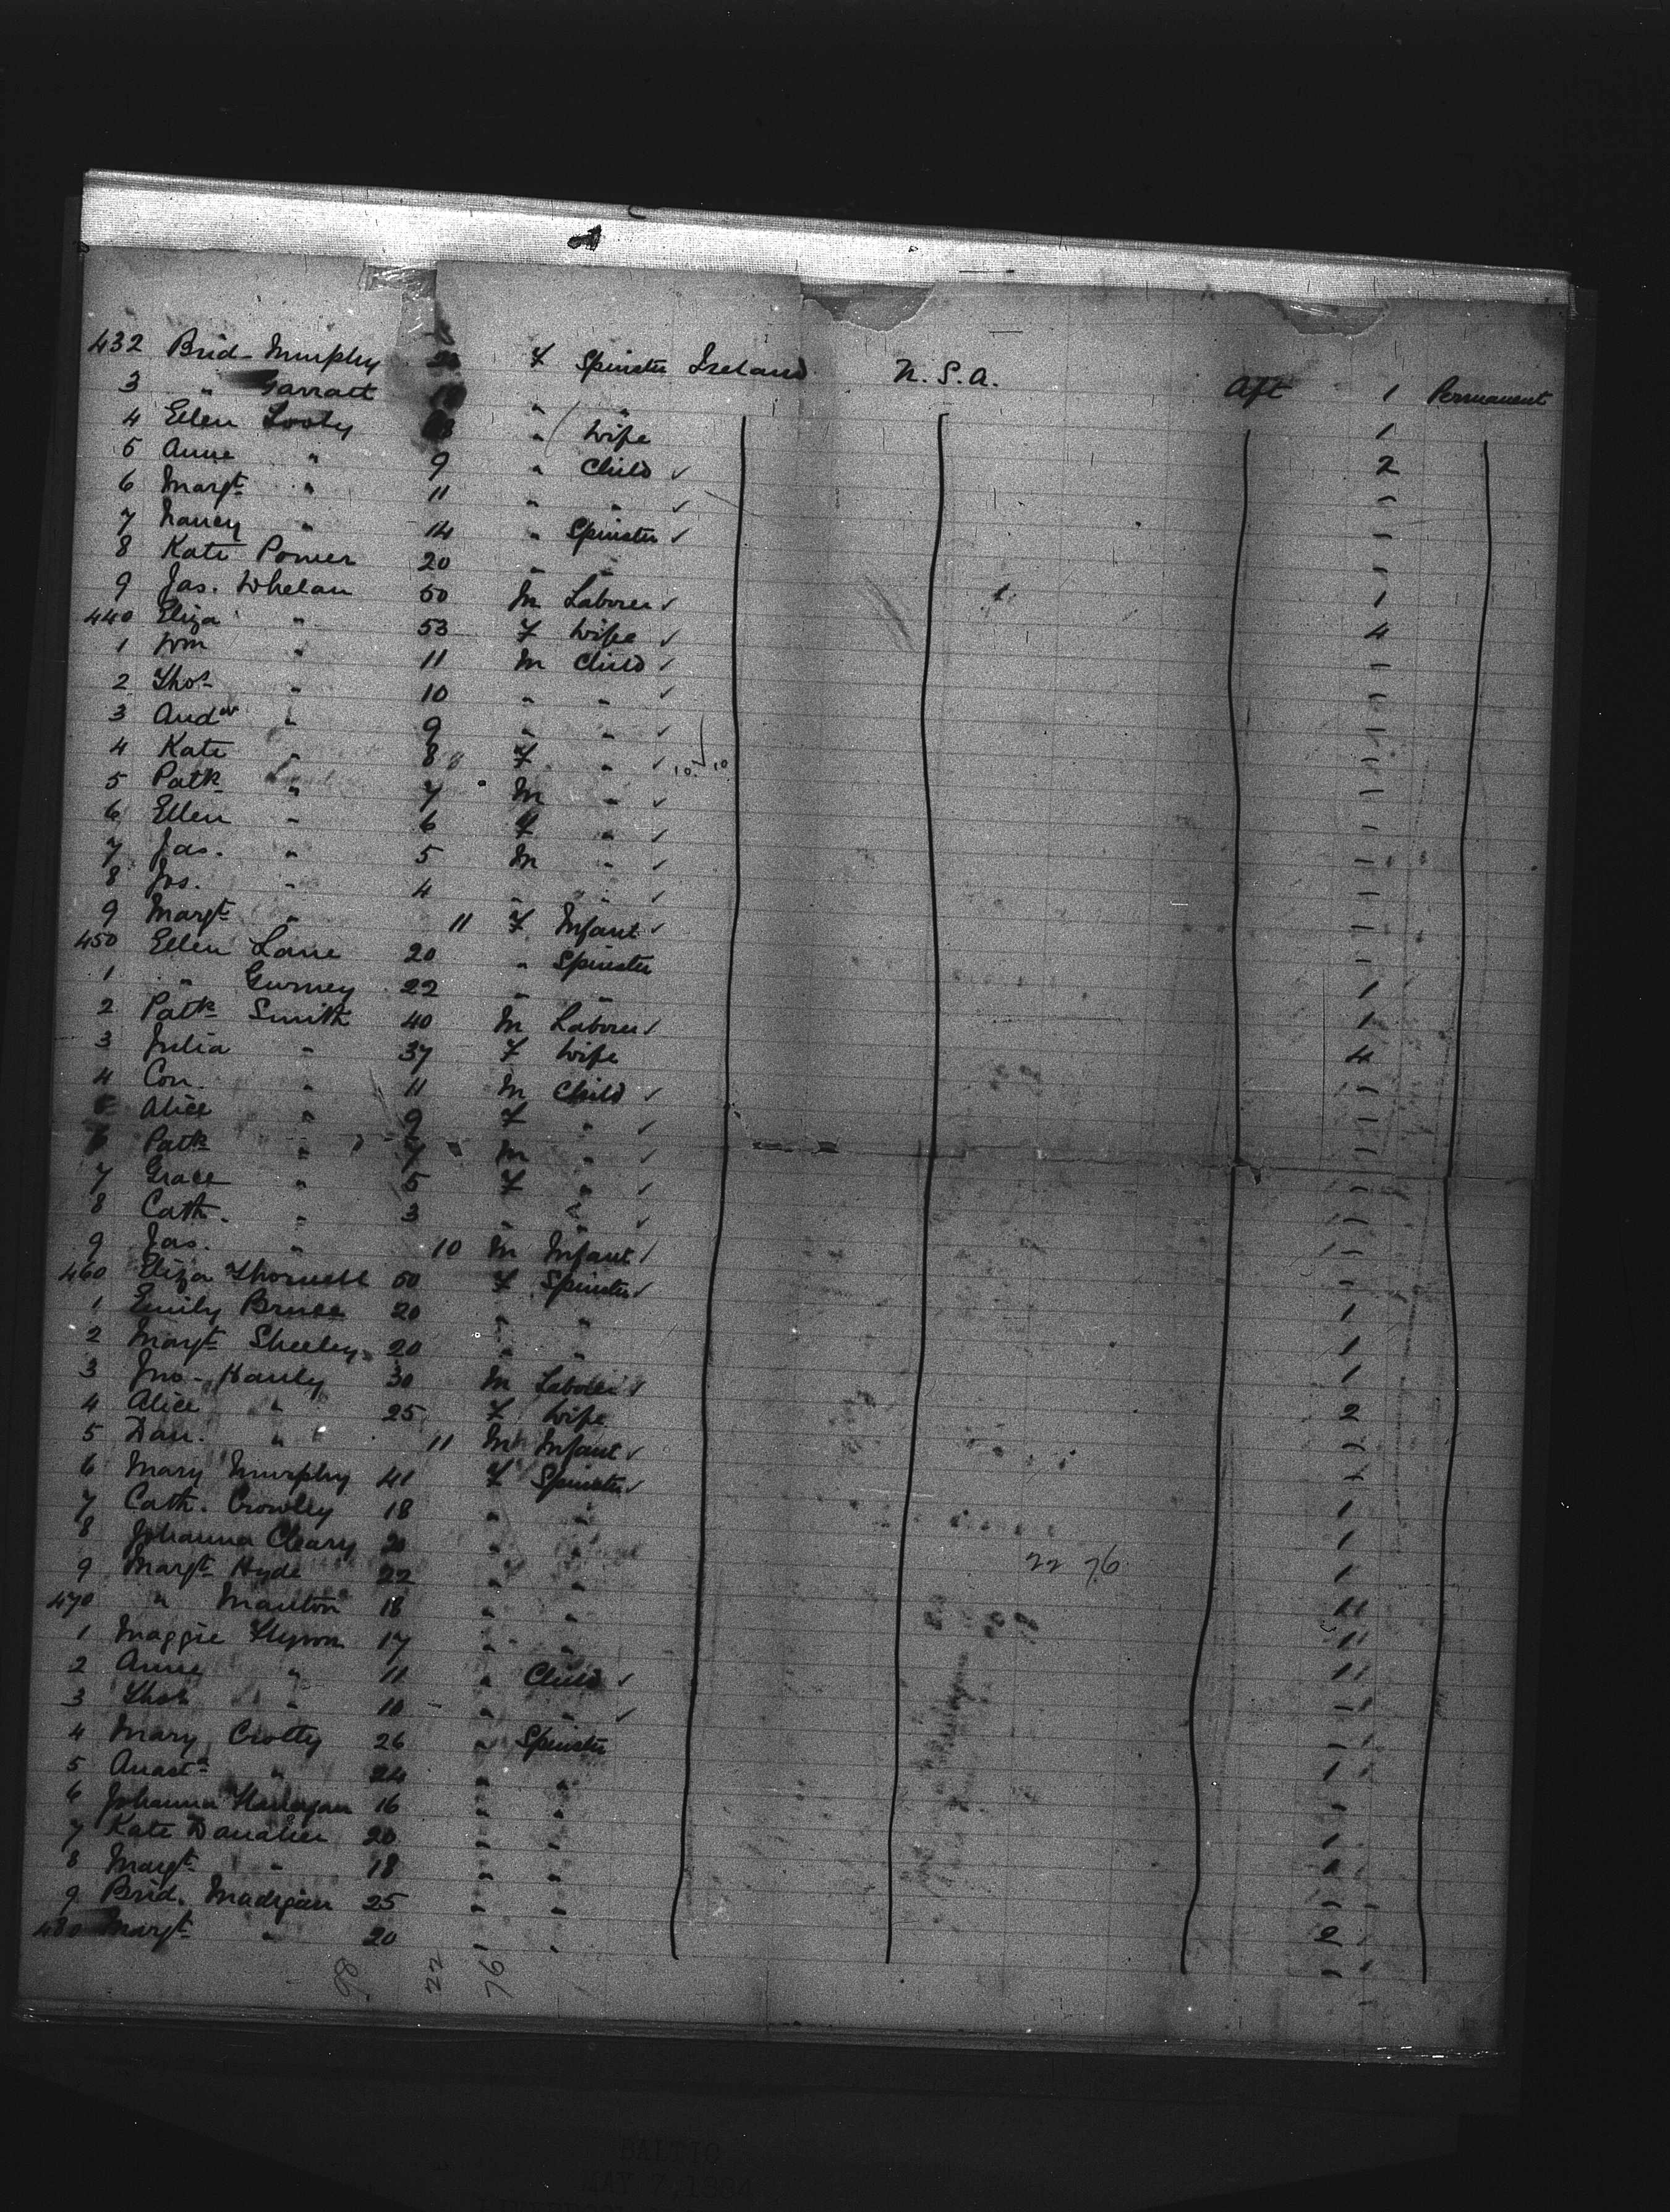 432 Brid Murphy F Spinster Ireland U.S.A. Aft 1 Permanent
3 " Garratt " " 1
4 Ellen Looby " Wife 2
5 Anne " 9 " Child ✓ -
6 Margt " 11 " " ✓ -
7 Nancy " 14 " Spinster ✓ -
8 Kate Power 20 " " 1
9 Jas. Whelan 50 M Laborer ✓ 4
440 Eliza " 53 F Wife ✓ -
1 Wm " 11 M Child ✓ -
2 Thos " 10 " " ✓ -
3 Andw " 9 " " ✓ -
4 Kate " 8 F " ✓ -
5 Patk " 7 M " ✓ -
6 Ellen " 6 F " ✓ -
7 Jas. " 5 M " ✓ -
8 Jos. " 4 " " ✓ -
9 Margt " 11 F Infant ✓ -
450 Ellen Lane 20 " Spinster 1
1 " Gurney 22 " " 1
2 Patk Smith 40 M Laborer ✓ 4
3 Julia " 37 F Wife -
4 Con. " 11 M Child ✓ -
Alice " 9 F " ✓ -
6 Patk " 7 M " ✓ -
7 Grace " 5 F " ✓ -
8 Cath. " 3 " " ✓ -
9 Jas. " 10 M Infant ✓ -
460 Eliza Thornell 50 F Spinster ✓ 1
1 Emily Bruce 20 " " 1
2 Margt Sheeley 20 " " 1
3 Jno. Hanly 30 M Laborer ✓ 2
4 Alice " 25 F Wife -
5 Dan. " 11 M Infant ✓ -
6 Mary Murphy 41 F Spinster ✓ 1
7 Cath. Crowley 18 " " 1
8 Johanna Cleary " " 1
9 Margt Hyde 22 " " 1
470 " Manton 18 " " 1
1 Maggie 17 " " 1
2 Anne " 11 " Child ✓ -
3 " 10 " " ✓ -
4 Mary Crotty 26 " Spinster 1
5 Anasta " 24 " " -
6 Johanna 16 " " 1
7 Kate Danaher 20 " "
8 Margt " 18 " " -
9 Brid. Madigan 25 " " 2
480 Margt " 20 " " -
22 76
98 22 76
BALTIC
MAY 7, 1884